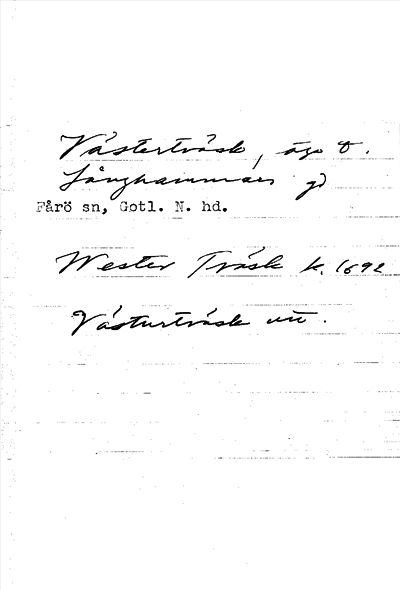 Västerträsk, ägo t.
Långhammars gd
Fårö sn, Gotl. N. hd.
Wester Träsk k. 1692
Västurträsk utt.